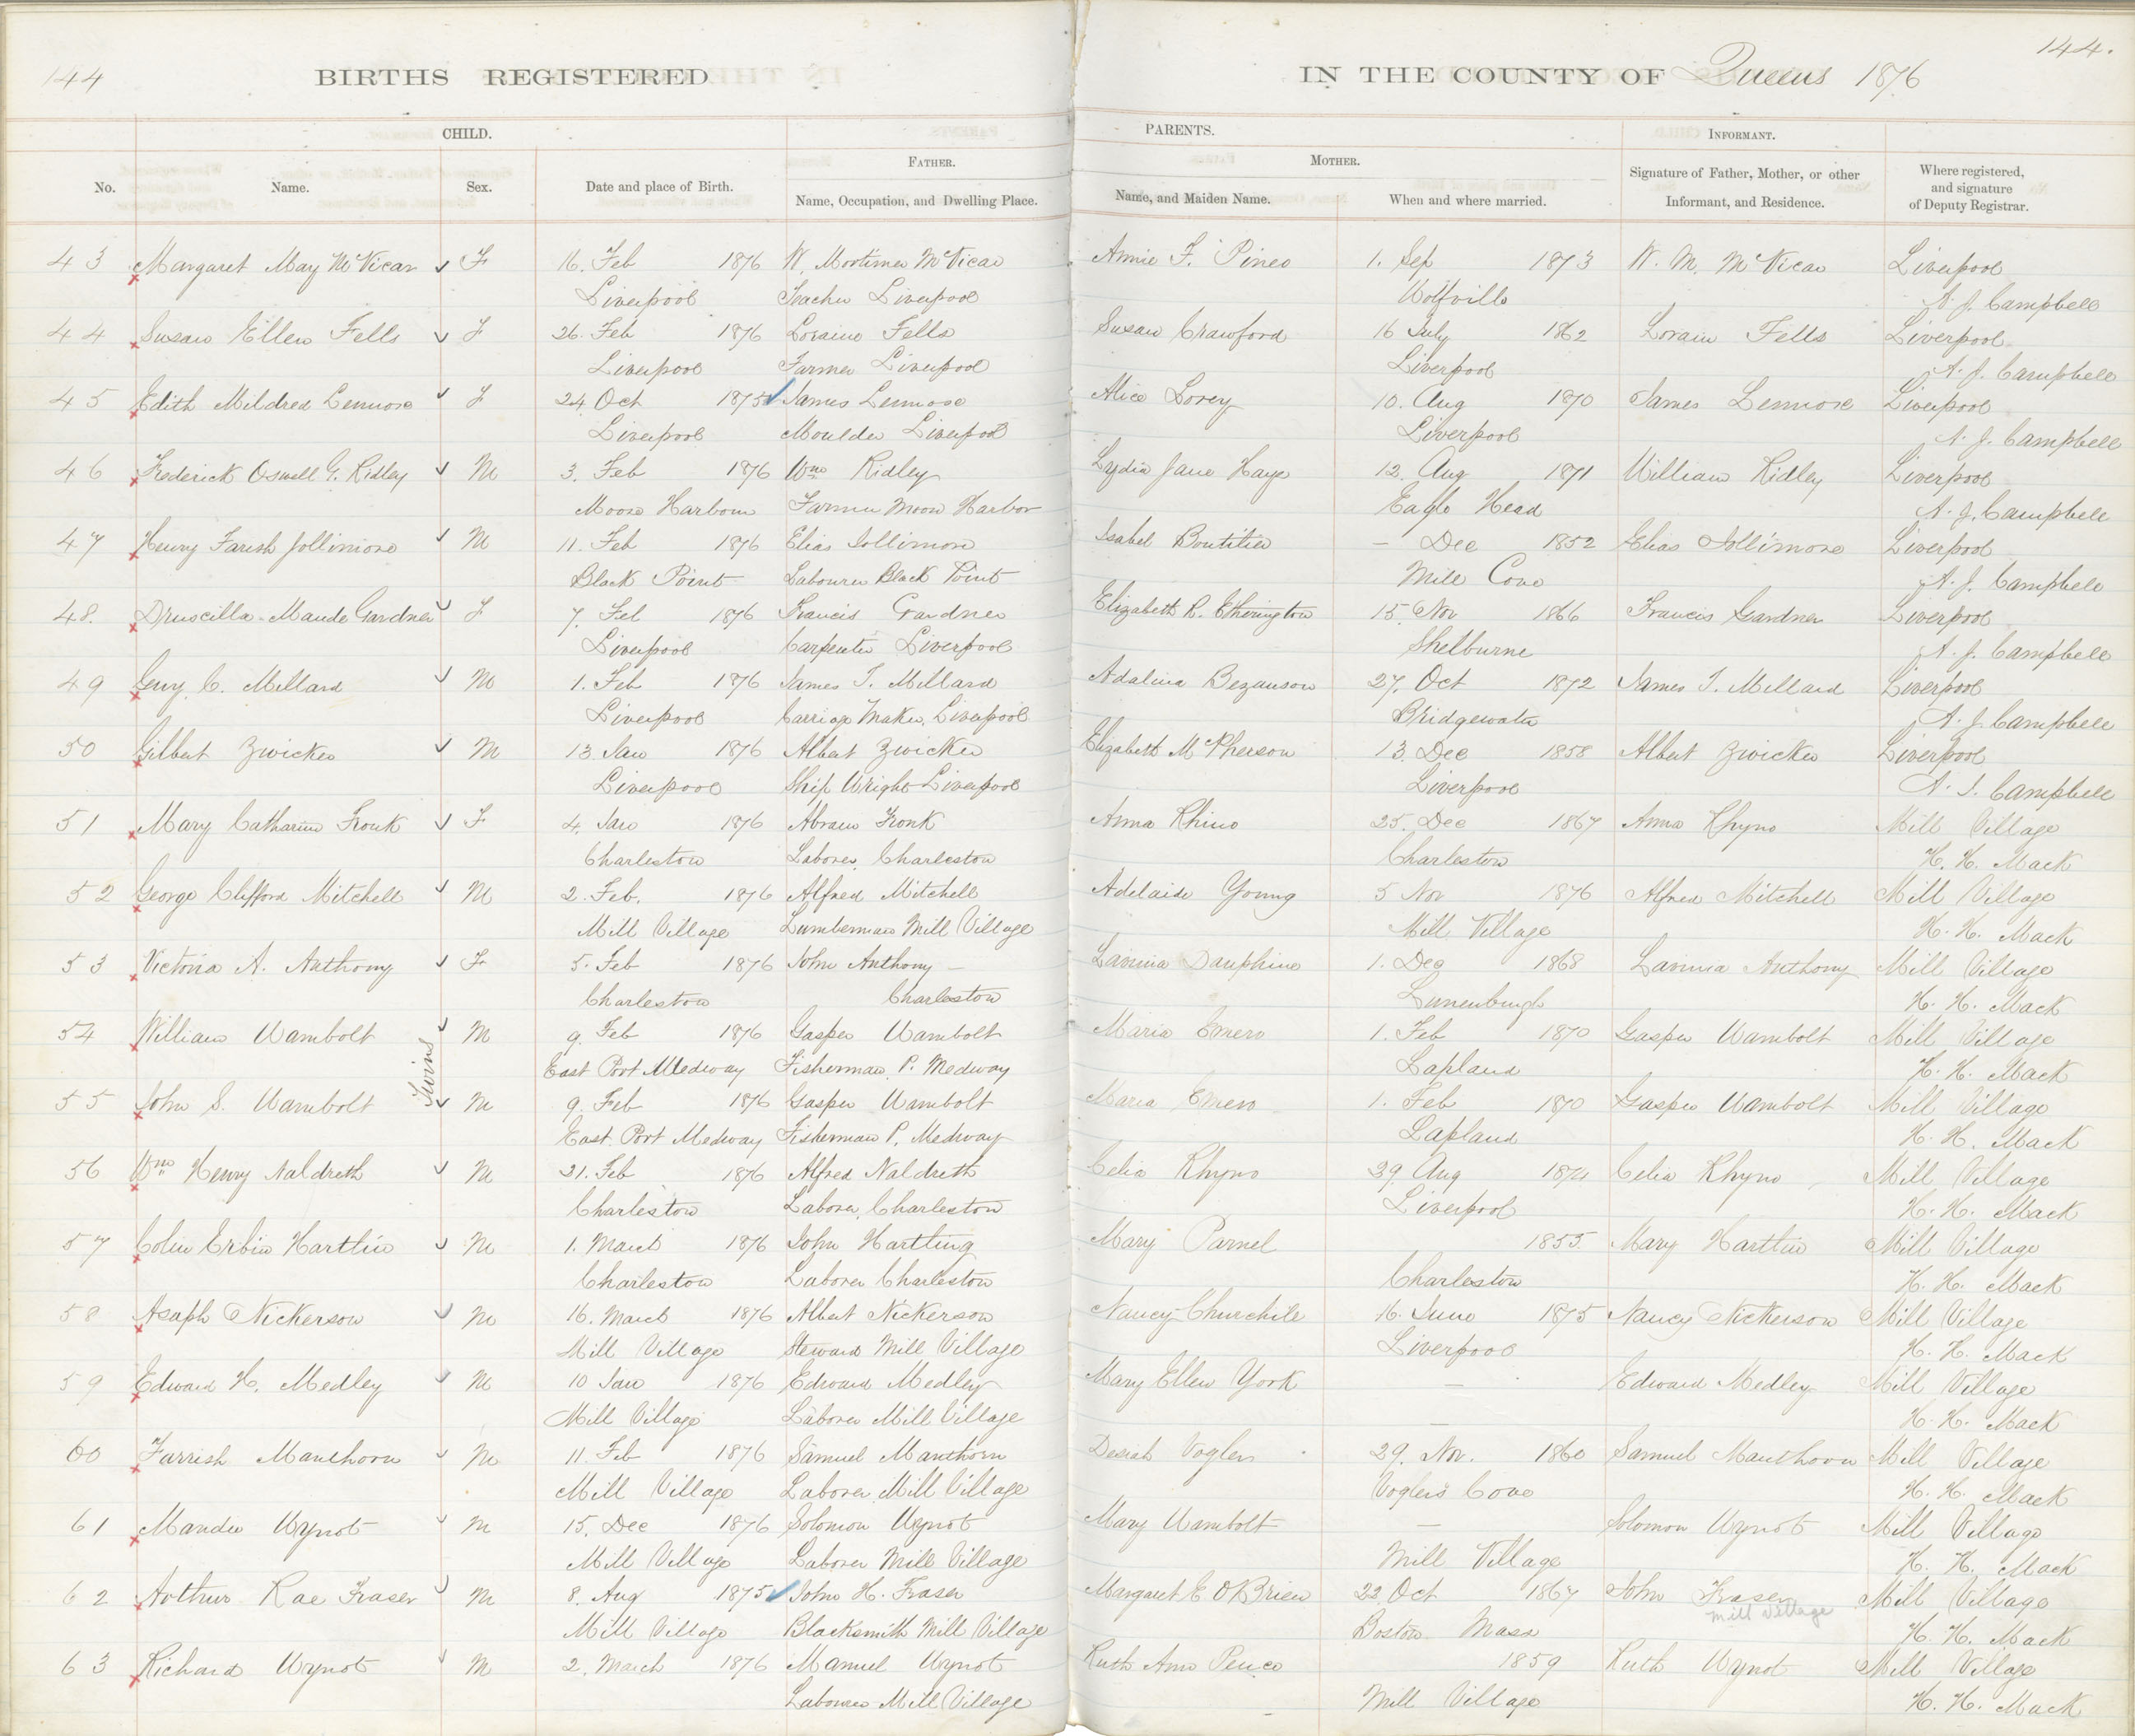 144
144.
BIRTHS REGISTERED IN THE COUNTY OF Queens 1876
CHILD. PARENTS. INFORMANT.
FATHER. MOTHER.
No. Name. Sex. Date and place of Birth. Name, Occupation, and Dwelling Place. Name, and Maiden Name. When and where married. Signature of Father, Mother, or other Informant, and Residence. Where registered, and signature of Deputy Registrar.
43 Margaret May McVicar F 16. Feb 1876 W. Mortimer McVicar Annie F. Pineo 1. Sep 1873 W. M. McVicar Liverpool
Liverpool Teacher Liverpool Wolfville A. J. Campbell
44 Susan Ellen Fells F 26. Feb 1876 Loraine Fells Susan Crawford 16 July 1862 Lorain Fells Liverpool
Liverpool Farmer Liverpool Liverpool A. J. Campbell
45 Edith Mildred Lenmore F 24 Oct 1875 James Lenmore Alice Lovey 10. Aug 1870 James Lenmore Liverpool
Liverpool Moulder Liverpool Liverpool A. J. Campbell
46 Frederick Oswell G. Ridley M 3. Feb 1876 Wm Ridley Lydia Jane Haye 12. Aug 1871 William Ridley Liverpool
Moose Harbour Farmer Moose Harbor Eagle Head A. J. Campbell
47 Henry Farish Jollimore M 11. Feb 1876 Elias Jollimore Isabel Boutilier – Dec 1852 Elias Jollimore Liverpool
Black Point Labourer Black Point Mill Cove A. J. Campbell
48. Druscilla Maude Gardner F 7. Feb 1876 Francis Gardner Elizabeth R. Etherington 15. Nov 1866 Francis Gardner Liverpool
Liverpool Carpenter Liverpool Shelburne A. J. Campbell
49 Guy C. Millard M 1. Feb 1876 James T. Millard Adalina Bezanson 27. Oct 1872 James T. Millard Liverpool
Liverpool Carriage Maker, Liverpool Bridgewater A. J. Campbell
50 Gilbert Zwicker M 13. Jan 1876 Albert Zwicker Elizabeth McPherson 13. Dec 1858 Albert Zwicker Liverpool
Liverpool Ship Wright Liverpool Liverpool A. J. Campbell
51 Mary Catharine Fronk F 4. Jan 1876 Abram Fronk Anna Rhino 25. Dec 1867 Anna Rhyno Mill Village
Charleston Laborer, Charleston Charleston H. H. Mack
52 George Clifford Mitchell M 2. Feb. 1876 Alfred Mitchell Adelaide Young 5 Nov 1876 Alfred Mitchell Mill Village
Mill Village Lumberman Mill Village Mill Village H. H. Mack
53 Victoria A. Anthony F 5. Feb 1876 John Anthony – Lavinia Dauphine 1. Dec 1868 Lavinia Anthony Mill Village
Charleston Charleston Lunenburgh H. H. Mack
54 William Wambolt M 9. Feb 1876 Gasper Wambolt Maria Emero 1. Feb 1870 Gasper Wambolt Mill Village
Twins
East Port Medway Fisherman P. Medway Lapland H. H. Mack
55 John S. Wambolt M 9. Feb 1876 Gasper Wambolt Maria Emero 1. Feb 1870 Gasper Wambolt Mill Village
East Port Medway Fisherman P. Medway Lapland H. H. Mack
56 Wm Henry Naldreth M 21. Feb 1876 Alfred Naldreth Celia Rhyno 29. Aug 1874 Celia Rhyno Mill Village
Charleston Laborer, Charleston Liverpool H. H. Mack
57 Colin Erbin Hartlin M 1. March 1876 John Hartling Mary Parnel 1855. Mary Hartlin Mill Village
Charleston Laborer Charleston Charleston H. H. Mack
58 Asaph Nickerson M 16. March 1876 Albert Nickerson Nancy Churchile 16. June 1875 Nancy Nickerson Mill Village
Mill Village Steward Mill Village Liverpool H. H. Mack
59 Edward H. Medley M 10 Jan 1876 Edward Medley Mary Ellen York – Edward Medley Mill Village
Mill Village Laborer Mill Village – H. H. Mack
60 Farrish Manthorn M 11. Feb 1876 Samuel Manthorn Desiah Vogler 29. Nov. 1860 Samuel Manthorn Mill Village
Mill Village Laborer Mill Village Voglers Cove H. H. Mack
61 Mander Wynot M 15. Dec 1876 Solomon Wynot Mary Wambolt – Solomon Wynot Mill Village
Mill Village Laborer Mill Village Mill Village H. H. Mack
62 Arthur Rae Fraser M 8. Aug 1875 John H. Fraser Margaret E OBrien 22 Oct 1867 John Fraser Mill Village
Mill Village Blacksmith Mill Village Boston Mass Mill Village H. H. Mack
63 Richard Wynot M 2. March 1876 Manuel Wynot Ruth Ann 1859 Ruth Wynot Mill Village
Labourer Mill Village – Mill Village H. H. Mack